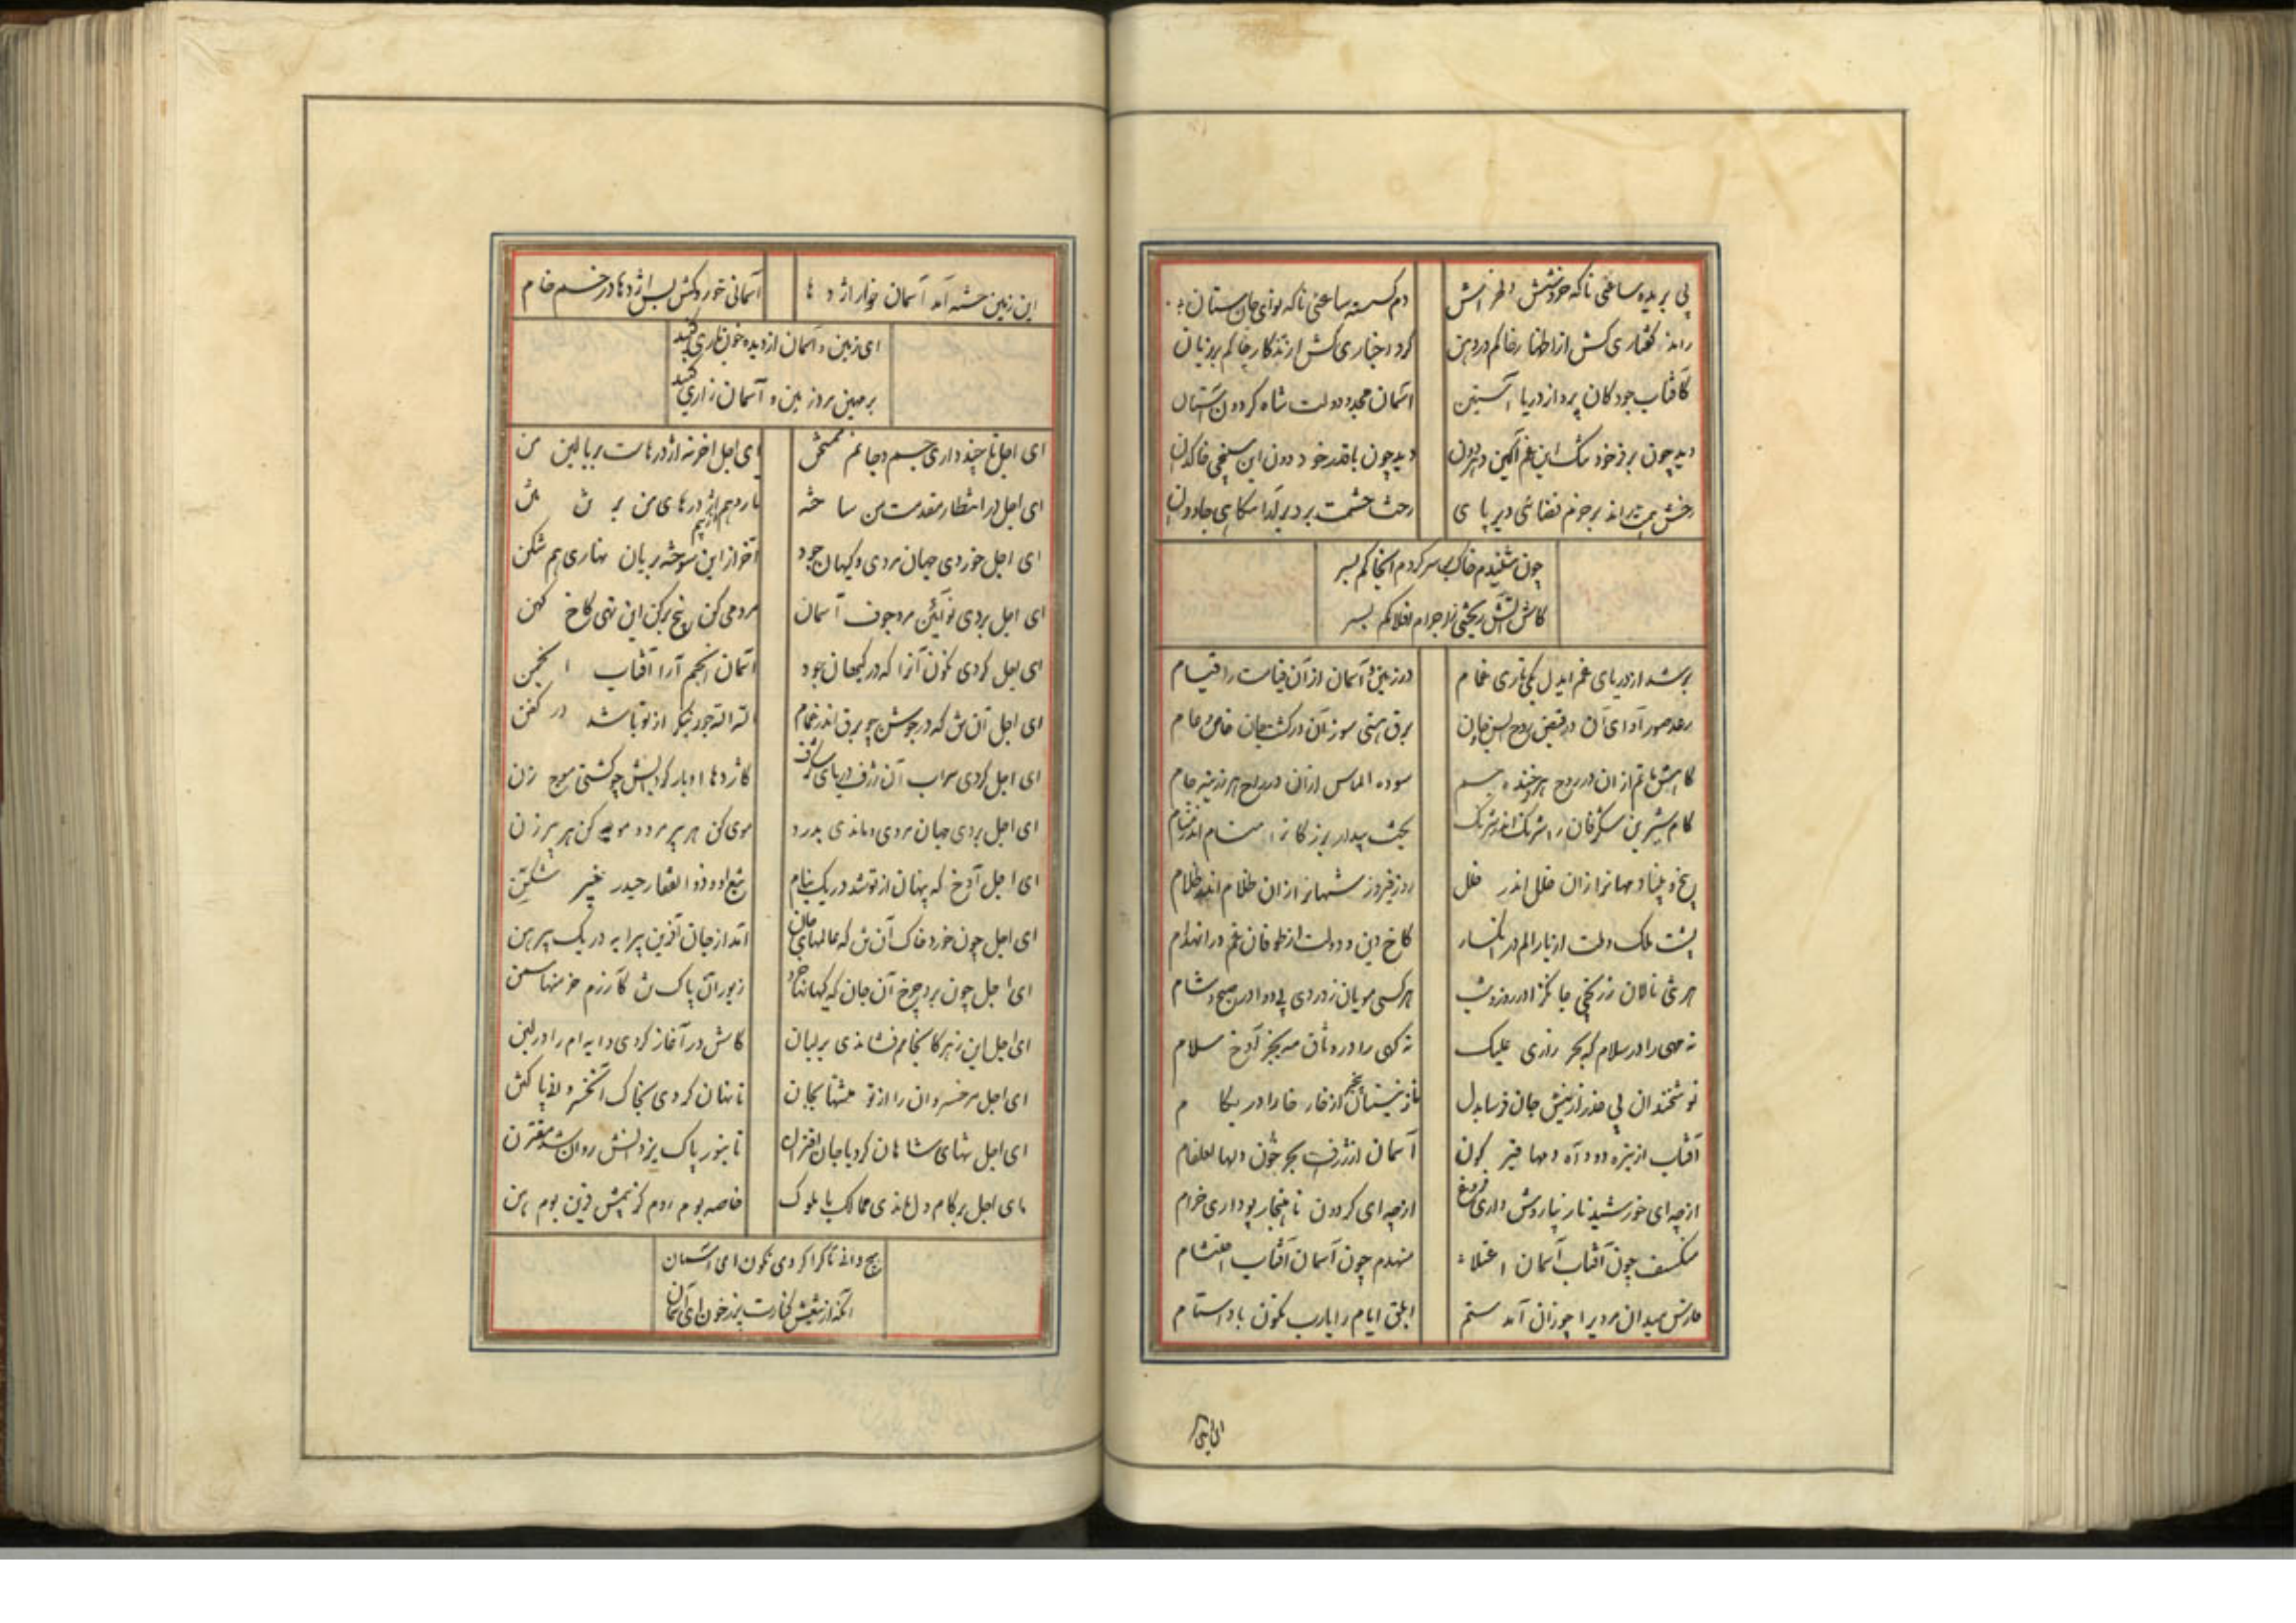 پی بریده ساعتی ناکه خودشش دلخراش دم کسسته ساعتی ناکه نوای جان ستان
راند گفتاری کش از اظهار خاکم در دهن کرد اخباری کش از تذکار خاکم بر زبان
کافتاب جود کان پرداز دریا آستین آسمان مجد و دولت شاه کردون آستان
دید چون بر فر خود تنک این غم آکین دهر دون دید چون با قدر خود دون این سپنجی خاکدان
رخش همت راند بر جرنم فضائی دیر پای رخت حشمت برد بر آرامگاهی جاودان
چون شنیدم خاک بر سر کردم انجاکم بسر
کاش آتش ریختی ز اجرام افلاکم بسر
بر شد از دریای غم ایدل یکی تاری غمام در زمین و آسمان از آن قیامت را قیام
رعد صور آوای آن در قبض روح انس و جان برق هستی سوز آن در کشت جان خاص و عام
کاهش ماتم از آن در روح هر فرخنده جسم سوده الماس از آن در راح هر زرینه جام
کام شیرین شکرفان را شرنک اندر شرنک بخت بیدار بزرکانرا منام اندر منام
بیخ و بنیاد مهانرا زان خلل اندر خلل روز فیروز شهانرا زان ظلام اندر ظلام
پشت ملک و ملت از بار الم در انکسار کاخ دین و دولت از طوفان غم در انهدام
هر تنی نالان ز رنجی جانکزا در روز و شب هر کسی مویان ز دردی بی دوا در صبح و شام
نه مهی را در سلام که بجز زاری علیک نه کهی را در وثاق مه بجز آوخ سلام
نوشخندان بی حذر از نیش جان فرسا بدل نازنینان بیخبر از خار خارا در بکام
آفتاب از تیره دود آه دلها قیر کون آسمان از ژرف بحر خون دلها لعلفام
از چه ای خورشید تار نیاروش داری فروغ از چه ای کردون ناهنجار پو داری خرام
منکسف چون آفتاب آسمان اعتلاء منهدم چون آسمان آفتاب احتشام
فارس میدان مردیرا چو زان آمد ستم ابلق ایام را یارب نکون باد استام
این زمین
این زمین حشه آمد آسمان خوار اژدها آسمانی خورد کش بس اژدها در خسم خام
ای زمین و آسمان از دیده خون جاری کنید
بر مهین مرد زمین و آسمان زاری کنید
ای اجل تا چند داری جسم و جانم ممتحن ای اجل آخر نه اژدرهاست بر بالین من
ای اجل در انتظار مقدمت من ساخته بار دهم اژدرهای من بر تن من
ای اجل خوردی جهان مردی و کیهان جود آخر از این سوخته بریان نهاری هم شکن
ای اجل بردی نو آئین مرد جوف آسمان مردمی کن بیخ بر کن این تهی کاخ کهن
ای اجل کردی نکون آنرا که در کیهان بود آسمان انجم آرا آفتاب انجمن
ای اجل آن تن که در جوشن چو برق اندر غمام الله الله چون نکر از تو باشد در کفن
ای اجل کردی سراب آن ژرف دریای شکرف کاژدها اوبار کردیش چو کشتی موج زن
ای اجل بردی جهان مردی و ماندی بدرد موی کن هر پیر مرد و مویه کن هر پیر زن
ای اجل آوخ که پنهان از تو شد در یک نیام تیغ او و ذوالفقار حیدر خیبر شکن
ای اجل چون خورد خاک آن تن که عالمهای جان آمد از جان آفرین پیرایه در یک پیرهن
ای اجل چون برد چرخ آن جان که کیهانها خرد زیور آن پاک تن کآرزم خرمنها سمن
ای اجل این زهر کانجامم فشاندی بر لبان کاش در آغاز کردی دایه ام را در لبن
ای اجل مر خسروان را از تو منتها بجان تا نهان کردی بخاک آنخسرو لاد پاک تن
ای اجل تنهای شاهان کرد با جان اقتران تا بنور پاک یزدانش روان شد مقترن
ای اجل بر کام دل ماندی ممالک با ملوک خاصه بوم روم کز بیمش قرین بوم بن
هیچ دانی تا کرا کردی نکون ای آسمان
آنکه از تیغش کنارت پر ز خون ای آسمان